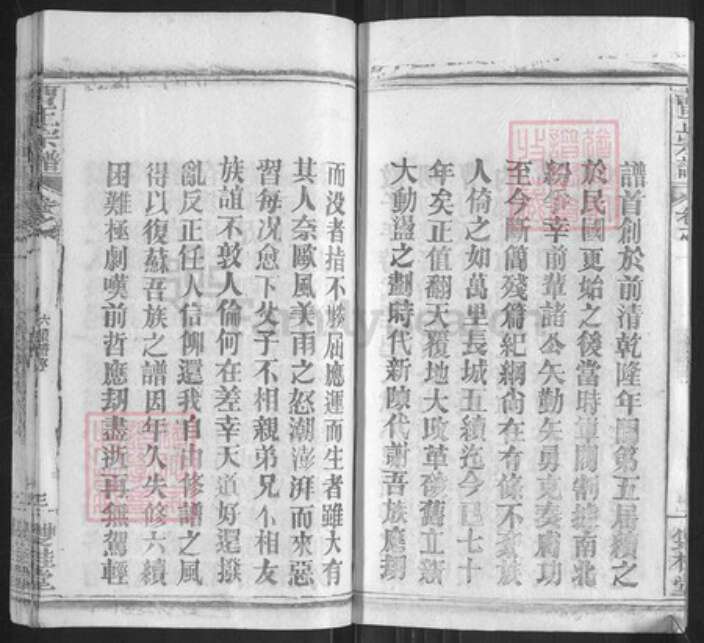 譜首創於前清乾隆年間第五屆續之
於民國更始之後當時軍閥割據南北
紛爭幸前輩諸公矢勤矢勇克奏膚功
至今斷簡殘篇紀綱尚在有條不紊族
人倚之如萬里長城五續迄今已七十
年矣正值翻天覆地大改革除舊立新
大動盪之劃時代新陳代謝吾族應刼
而没者指不勝屈應運而生者雖大有
其人奈歐風美雨之怒潮澎湃而來惡
習每况愈下父子不相親弟兄不相友
族誼不敦人倫何在差幸天道好還撥
亂反正任人信仰還我自由修譜之風
得以復蘇吾族之譜因年久失修六續
困難極劇嘆前哲應刼盡逝再無駕輕
曹氏宗譜
卷之
六續譜序
三
雙桂堂